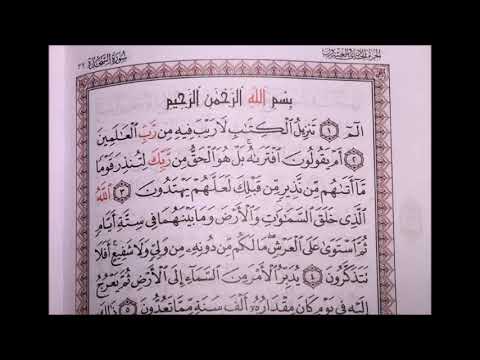 سُورَةُ السَّجْدَةِ ٣٢
الجزء الحادي والعشرون
بِسْمِ اللَّهِ الرَّحْمَنِ الرَّحِيمِ
الٓمٓ ١ تَنزِيلُ ٱلْكِتَٰبِ لَا رَيْبَ فِيهِ مِن رَّبِّ ٱلْعَٰلَمِينَ
٢ أَمْ يَقُولُونَ ٱفْتَرَىٰهُ بَلْ هُوَ ٱلْحَقُّ مِن رَّبِّكَ لِتُنذِرَ قَوْمًا
مَّآ أَتَىٰهُم مِّن نَّذِيرٍ مِّن قَبْلِكَ لَعَلَّهُمْ يَهْتَدُونَ ٣ ٱللَّهُ
ٱلَّذِى خَلَقَ ٱلسَّمَٰوَٰتِ وَٱلْأَرْضَ وَمَا بَيْنَهُمَا فِى سِتَّةِ أَيَّامٍ
ثُمَّ ٱسْتَوَىٰ عَلَى ٱلْعَرْشِ مَا لَكُم مِّن دُونِهِۦ مِن وَلِىٍّ وَلَا شَفِيعٍ أَفَلَا
تَتَذَكَّرُونَ ٤ يُدَبِّرُ ٱلْأَمْرَ مِنَ ٱلسَّمَآءِ إِلَى ٱلْأَرْضِ ثُمَّ يَعْرُجُ
إِلَيْهِ فِى يَوْمٍ كَانَ مِقْدَارُهُۥٓ أَلْفَ سَنَةٍ مِّمَّا تَعُدُّونَ ٥ ذَٰلِكَ